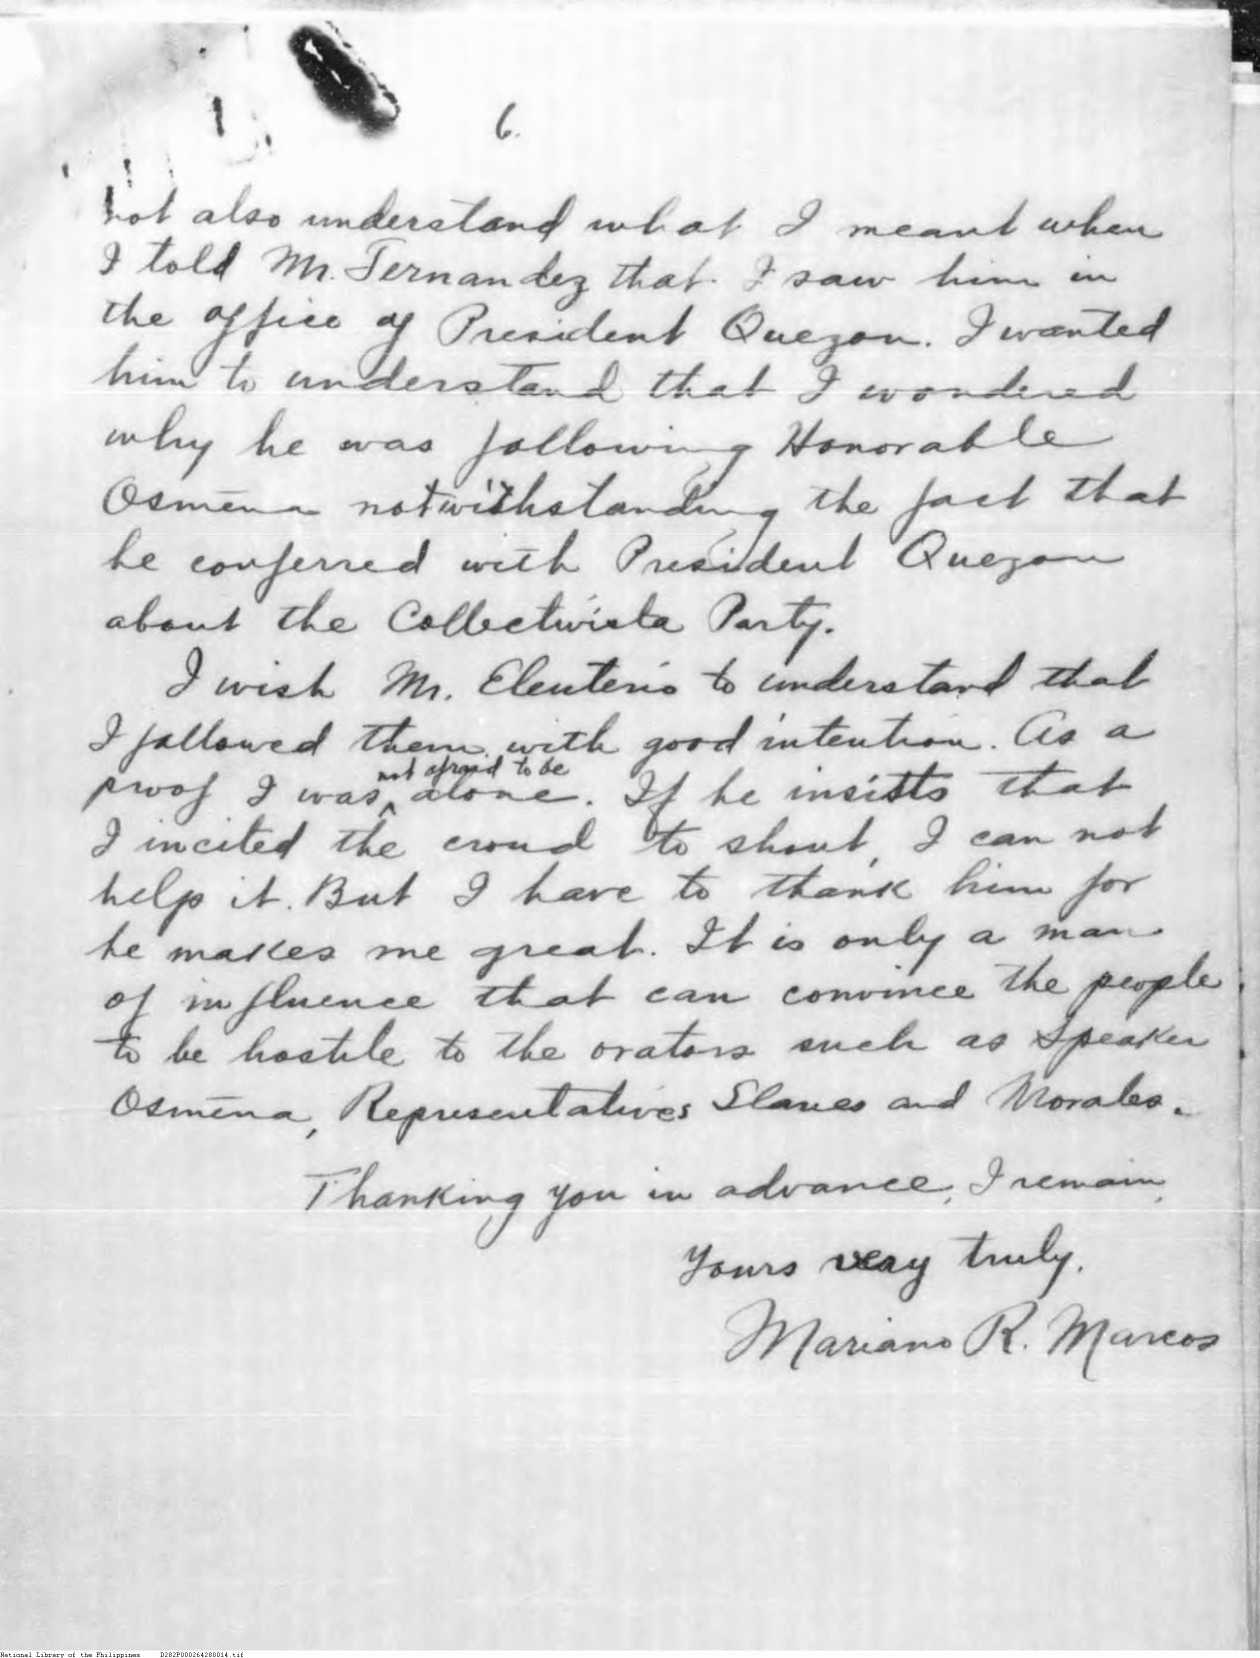 6.
not also understand what I meant when
I told Mr. Fernandez that I saw him in
the office of President Quezon. I wanted
him to understand that I wondered
why he was following Honorable
Osmēna notwithstanding the fact that
he conferred with President Quezon
about the Collectivista Party.
I wish Mr. Eleuterio to understand that
I followed them with good intention. As a
not afraid to be
proof I was alone. If he insists that
I incited the crowd to shout, I can not
help it. But I have to thank him for
he makes me great. It is only a man
of influence that can convince the people
to be hostile to the orators such as Speaker
Osmēna, Representatives and Morales.
Thanking you in advance, I remain,
Yours very truly,
Mariano R. Marcos
National Library of the Philippines D282P000264280014.tif